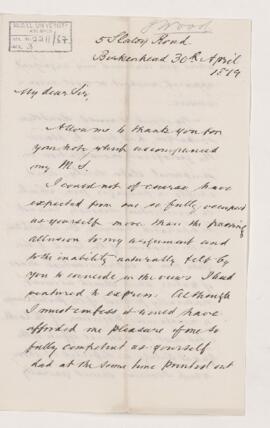 McGILL UNIVERSITY
ARCHIVES
ACC. NO. 2211/67
REF. 3
J Wood
5 Slatey Road
Birkenhead 30th April
1879
My dear Sir,
Allow me to thank you for
your note which accompanied
my M.S.
I could not of course have
expected from one so fully occupied
as yourself more than the passing
allusion to my argument and
to the inability naturally felt by
you to coincide in the views I had
ventured to express. Although
I must confess it would have
afforded me pleasure if one so
fully competent as yourself
had at the same time pointed out